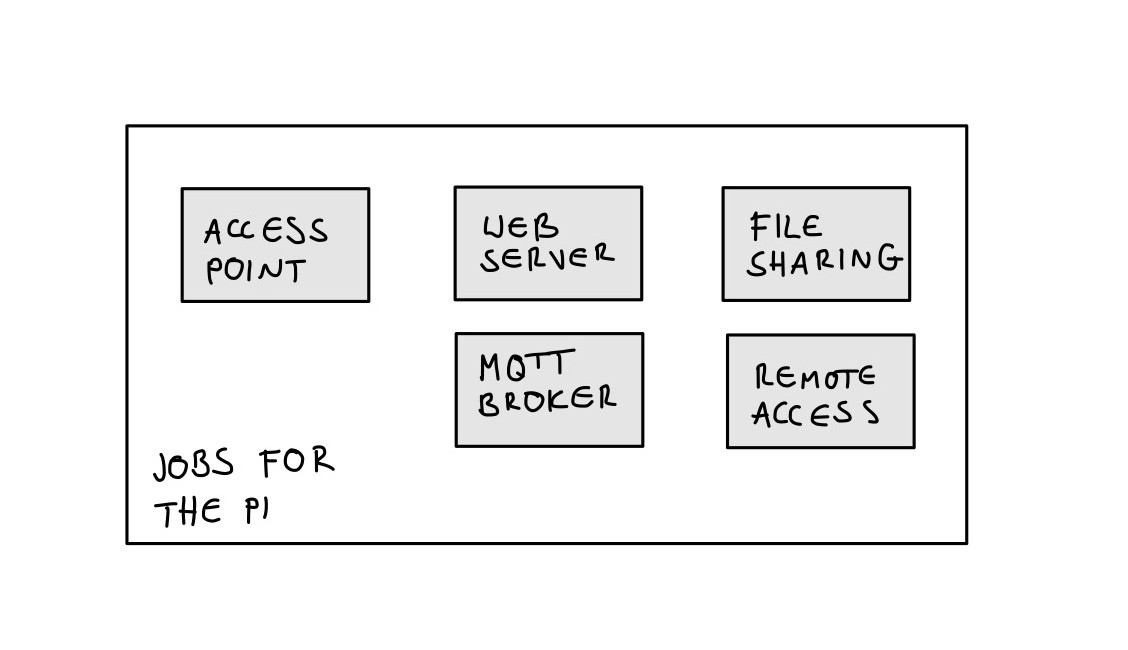 ACCESS
POINT
WEB
SERVER
FILE
SHARING
MQTT
BROKER
REMOTE
ACCESS
JOBS FOR
THE PI